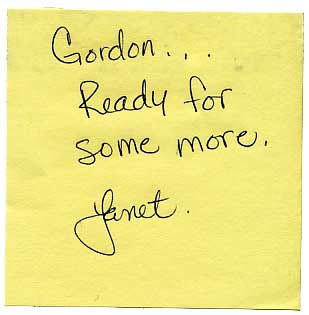 Gordon...
Ready for
some more.
Janet.